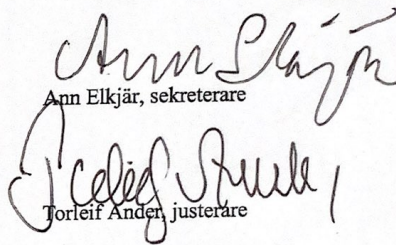 Ann Elkjär
Ann Elkjär, sekreterare
Torleif Ander, justerare